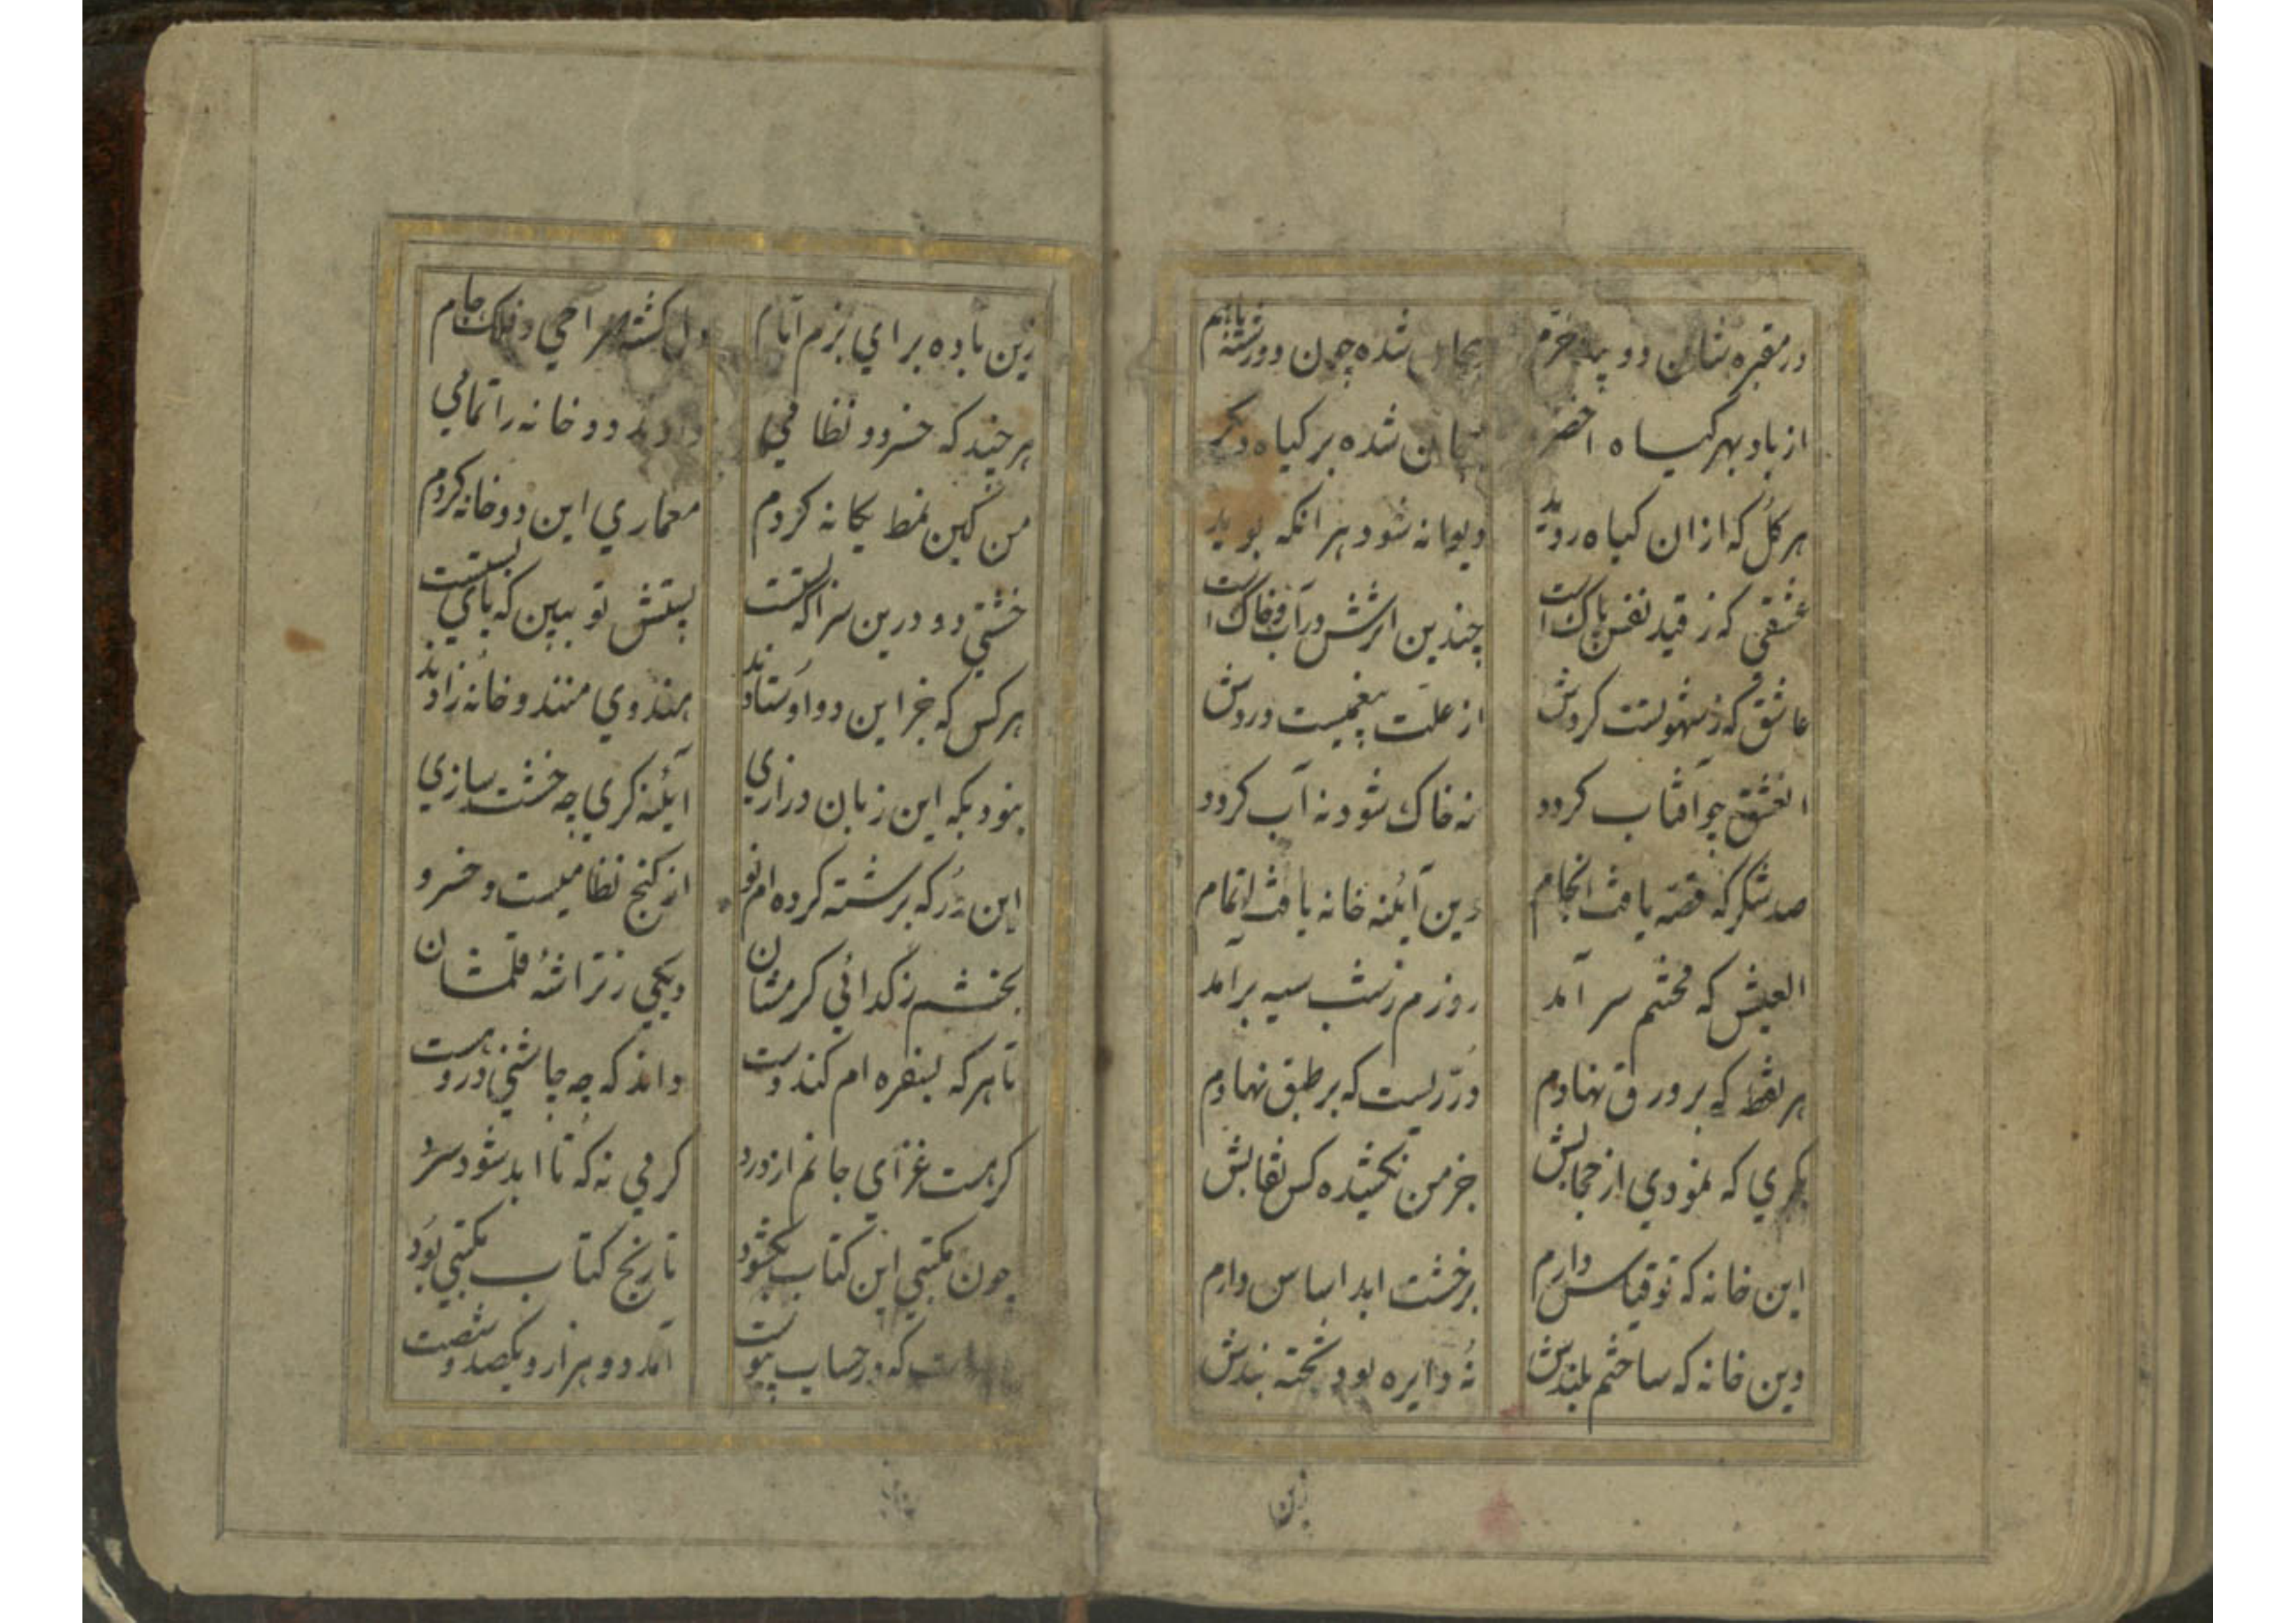 در مقبره شان دو بید خرم
شده چون دو رشته باهم
از باد بهر کیاه اخضر
شده بر کیاه دکر
هر کل که ازان کیاه روید
دیوانه شود هر انکه بوید
عشقی که ز قید نفس پاک است
چندین اثرش در آب و خاک است
عاشق که ز شهوتست کردش
از علت پیغمیست دردش
العشق چو آفتاب کردد
نه خاک شود نه آب کردد
صد شکر که قصه یافت انجام
وین آئینه خانه یافت اتمام
العیش که محنتم سر آمد
روزم ز شب سیه بر آمد
هر نقطه که بر ورق نهادم
دریست که بر طبق نهادم
بکری که نمودی از حجابش
جز من نکشیده کس نقابش
این خانه که نو قیاس دارم
بر خشت ابد اساس دارم
وین خانه که ساختم بلندش
نه دایره بود تخته بندش
زین
زین باده برای بزم ایام
دل کشته صراحی و فلک جام
هر چند که خسرو و نظامی
دادند دو خانه را تمامی
من کین نمط یکانه کردم
معماری این دو خانه کردم
خشتی دو درین سرا که بستست
پستش تو ببین که پای بستست
هر کس که جز این دو اوستادند
هندوی منند و خانه زادند
بنود بکه این زبان درازی
آیئنه کری چه خشت سازی
این در که برشته کرده ام نو
از کنج نظامیست و خسرو
بخشم ز کدائی کرمشان
دیکی ز تراشهٔ قلمشان
تا هر که بسفره ام کند دست
داند که چه چاشنی درو هست
کر هست غذای جانم از درد
کرمی نه که تا ابد شود سرد
چون مکتبی این کتاب بکشود
تاریخ کتاب مکتبی بود
که در حساب پیوست
آمد دو هزار و یکصد و شصت